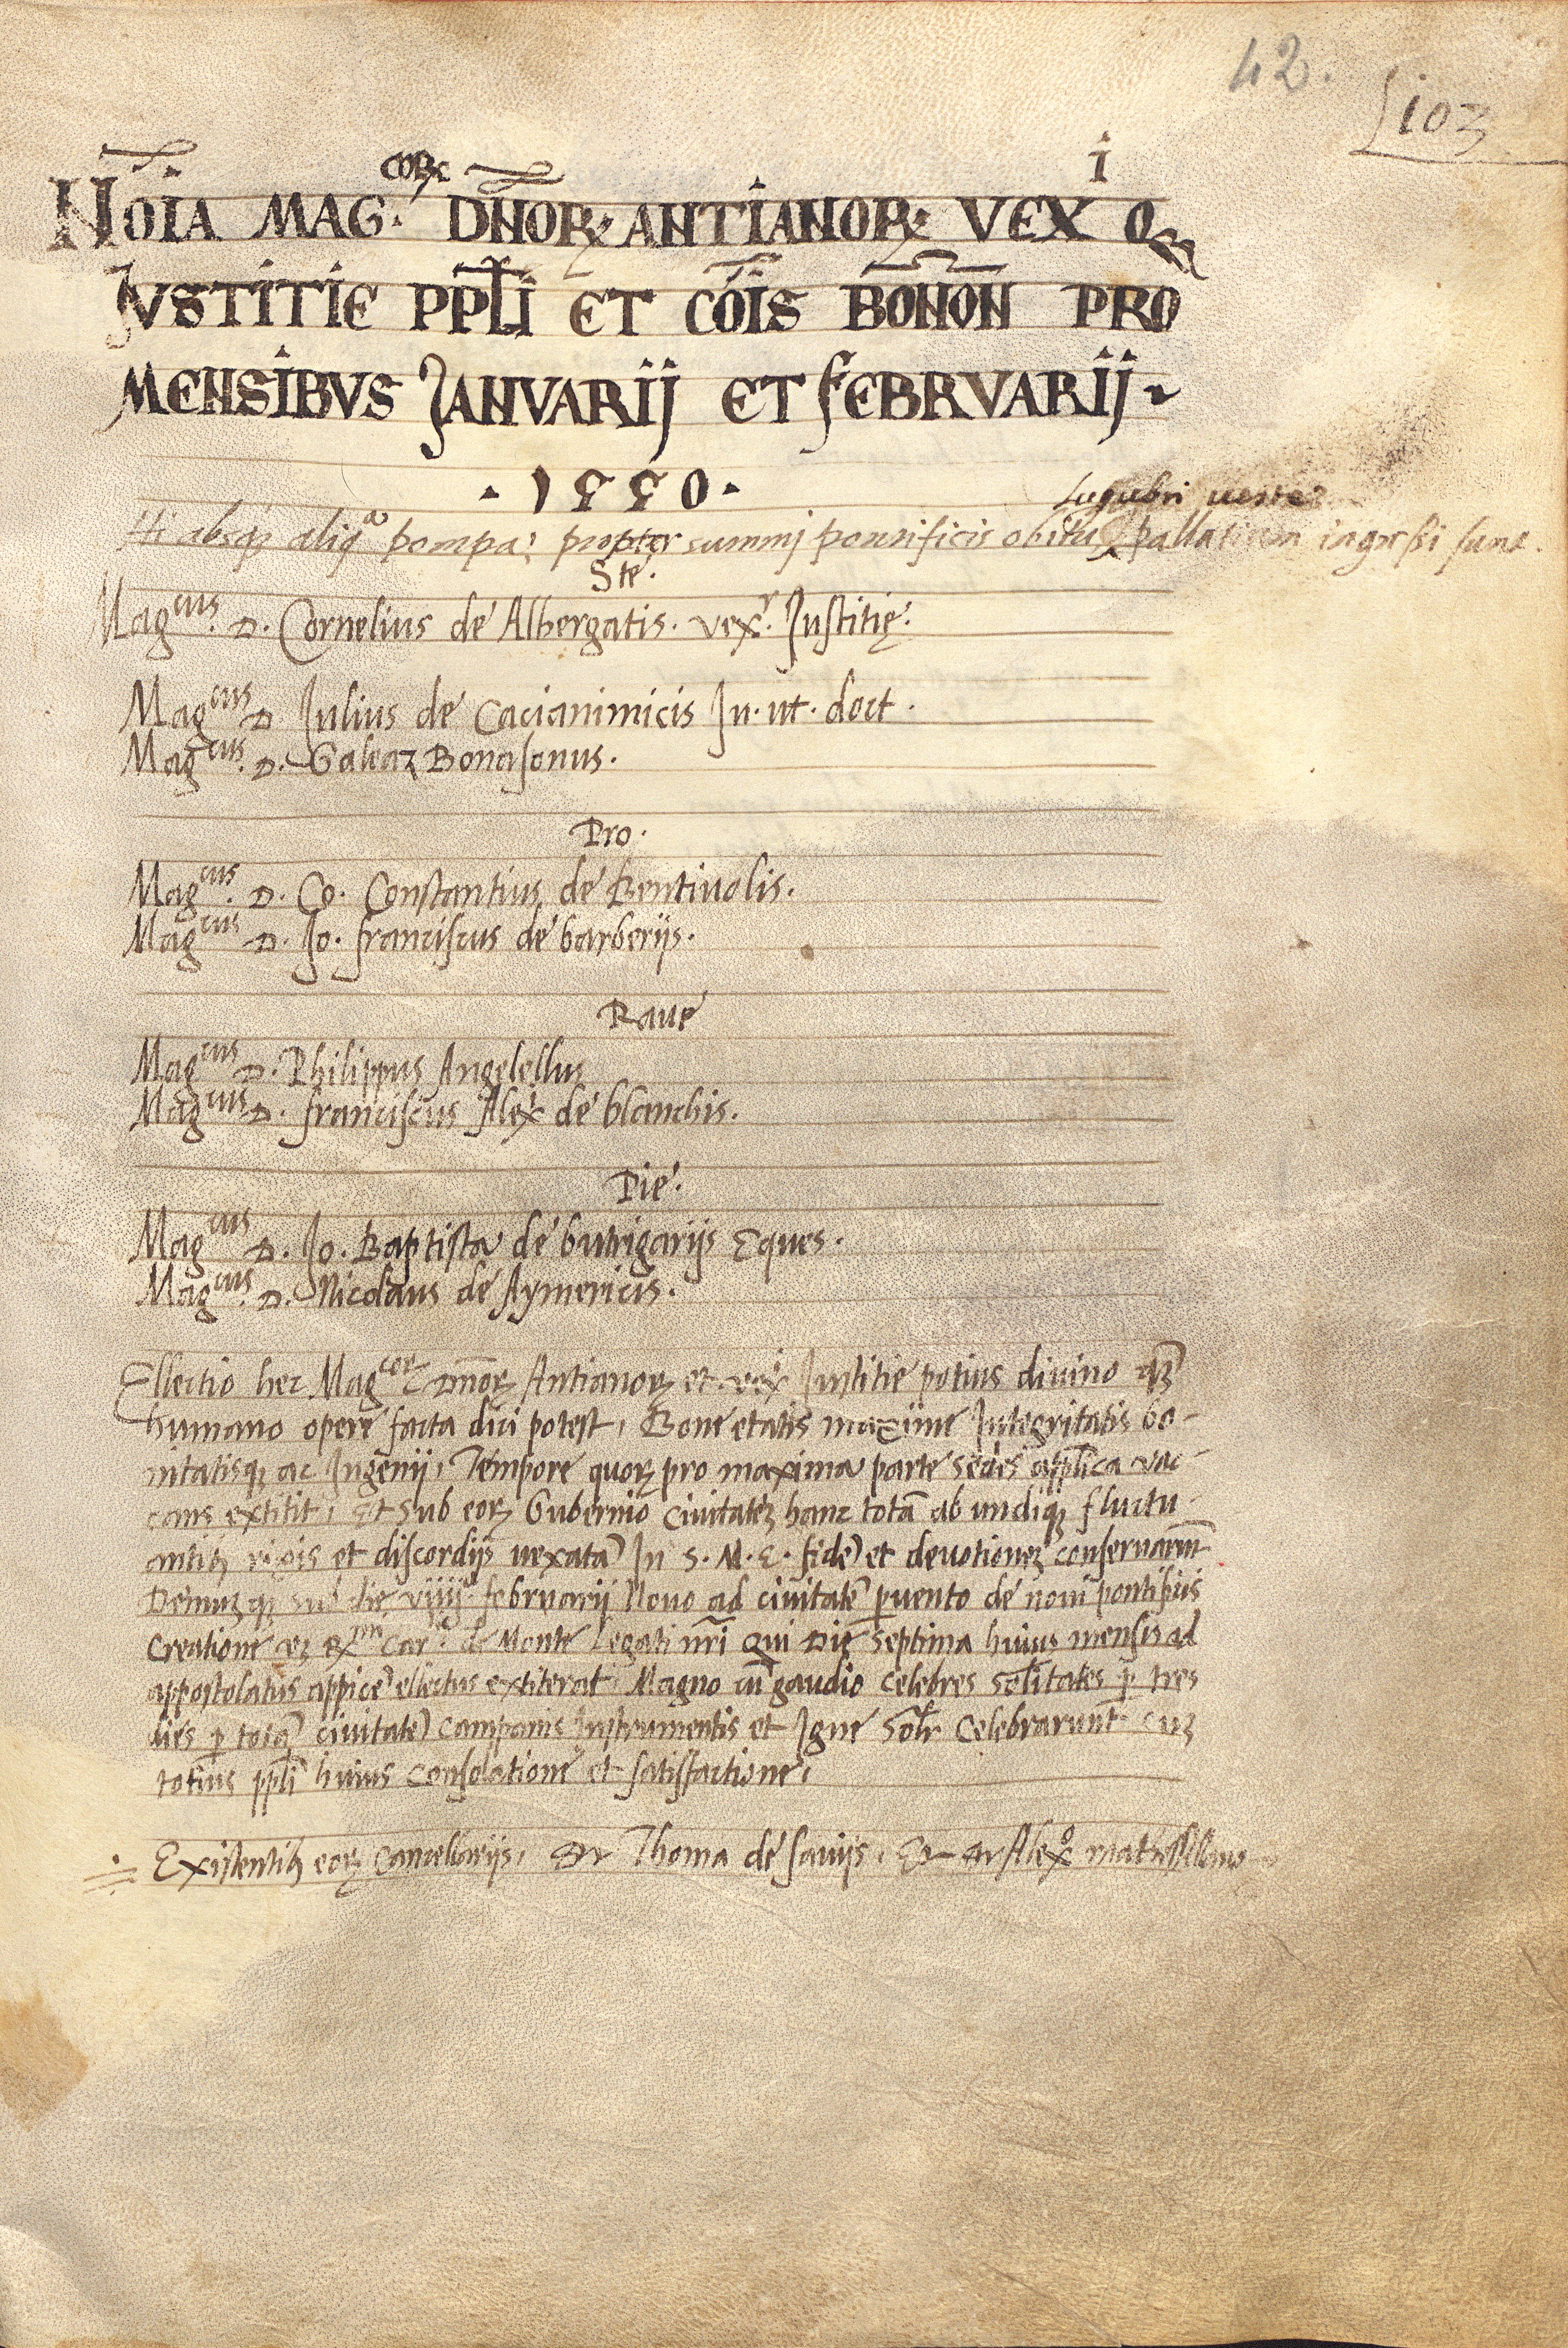 42.
103
NOĪA MAG.CORꝜ DÑORꝜ ANTIANORꝜ VEX I Qꝫ
JVSTITIE PPLI ET CŌIS BONON PRO
MENSIBVS JANVARIJ ET FEBRVARIJ
·1550·
lugubri ueste
Hi absqꝫ aliqa pompa; propter summj pontificis obitū pallatium ingressi sunt.
Ste.
Magcus. D. Cornelius de Albergatis. vexr. Justitię.
Magcus D Julius de Cacianimicis Ju. ut. doct.
Magcus. D. Galeaz Bonasonus.
Pro.
Magcus. D. Co. Constantius de Bentiuolis.
Magcus D. Jo. franciscus de barberijs.
Raue
Magcus D. Philippus Angelellus
Magcus D. franciscus Alexr de blanchis.
Pie.
Magcus D. Jo. Baptista de butrigarijs Eques.
Magcus. D. Nicolaus de Aymericis.
Ellectio hec Magcorꝝ Dnorꝝ Antianorꝝ et vexi Justitie potius diuino qꝫ
humano opere facta dici potest, Bone etatis maxime Integritatis bo-
nitatisqꝫ ac Ingenij, Tempore quorꝝ pro maxima parte sedes applica vac-
cans extitit, Et sub eorꝝ Gubernio Ciuitateꝫ hanc totā ab undiqꝫ fluctu-
antibꝫ rixis et discordijs uexatā In S. M. E. fidē et deuotioneꝫ conseruarunt
Demuꝫ qꝫ sub die viiij februarij Nouo ad ciuitatē peruento de noui pontificis
Creatione eꝫ Rmi Carlis de Monte Legati nri Qui Die septima huius mensis ad
appostolatus appicē ellectus extiterat, Magno cū gaudio celebres solitates p tres
dies p totā ciuitatē Campanis Instrumentis et Igne Solr Celebrarunt cuꝫ
totius ppli huius consolatione et satisfactione,
Existentibꝫ eorꝝ Cancellarijs, Dr Thoma de sauijs, Et Dr Alexo